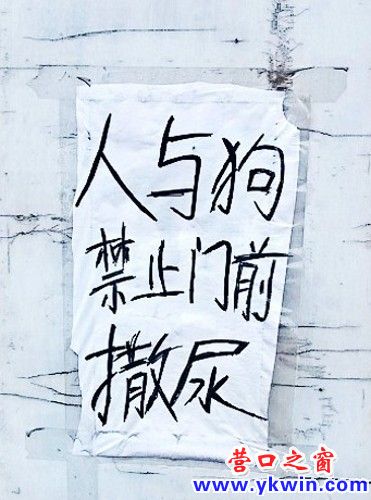 人与狗
禁止门前
撒尿
营口之窗
www.ykwin.com